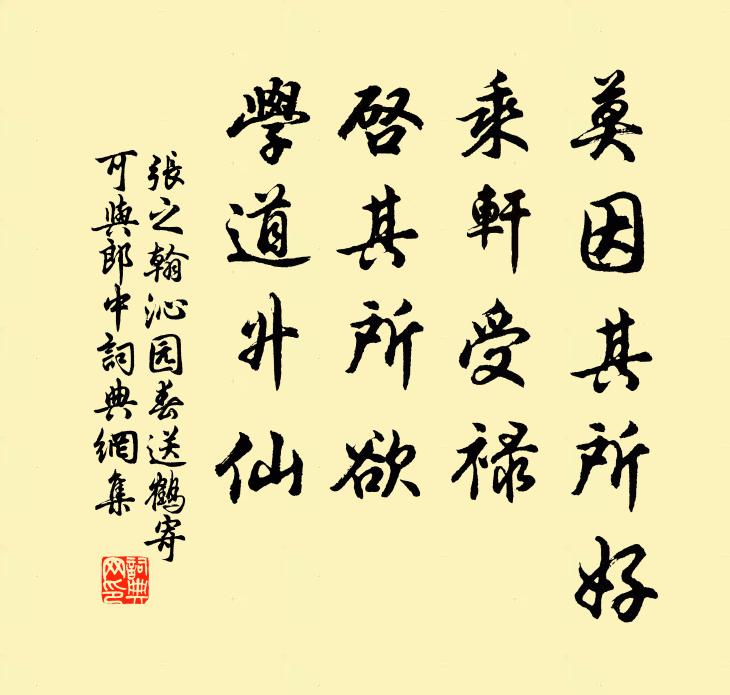 莫因其所好
乘軒受禄
啓其所欲
學道升仙
張之翰沁园春送鶴寄
可與郎中詞典網集
詞典
网印